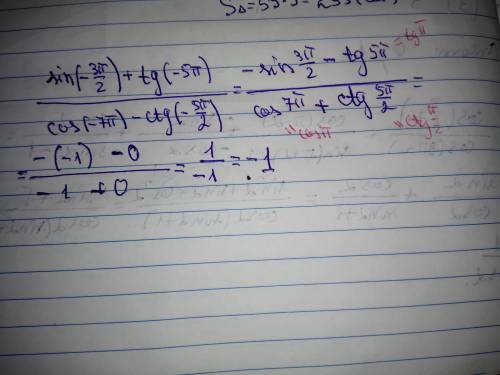 sin(-3π/2) + tg(-5π) / cos(-7π) - ctg(-5π/2) = -sin 3π/2 - tg 5π / cos 7π + ctg 5π/2 =
= tg π
" cos π " ctg π/2
= -(-1) - 0 / -1 + 0 = 1 / -1 = -1